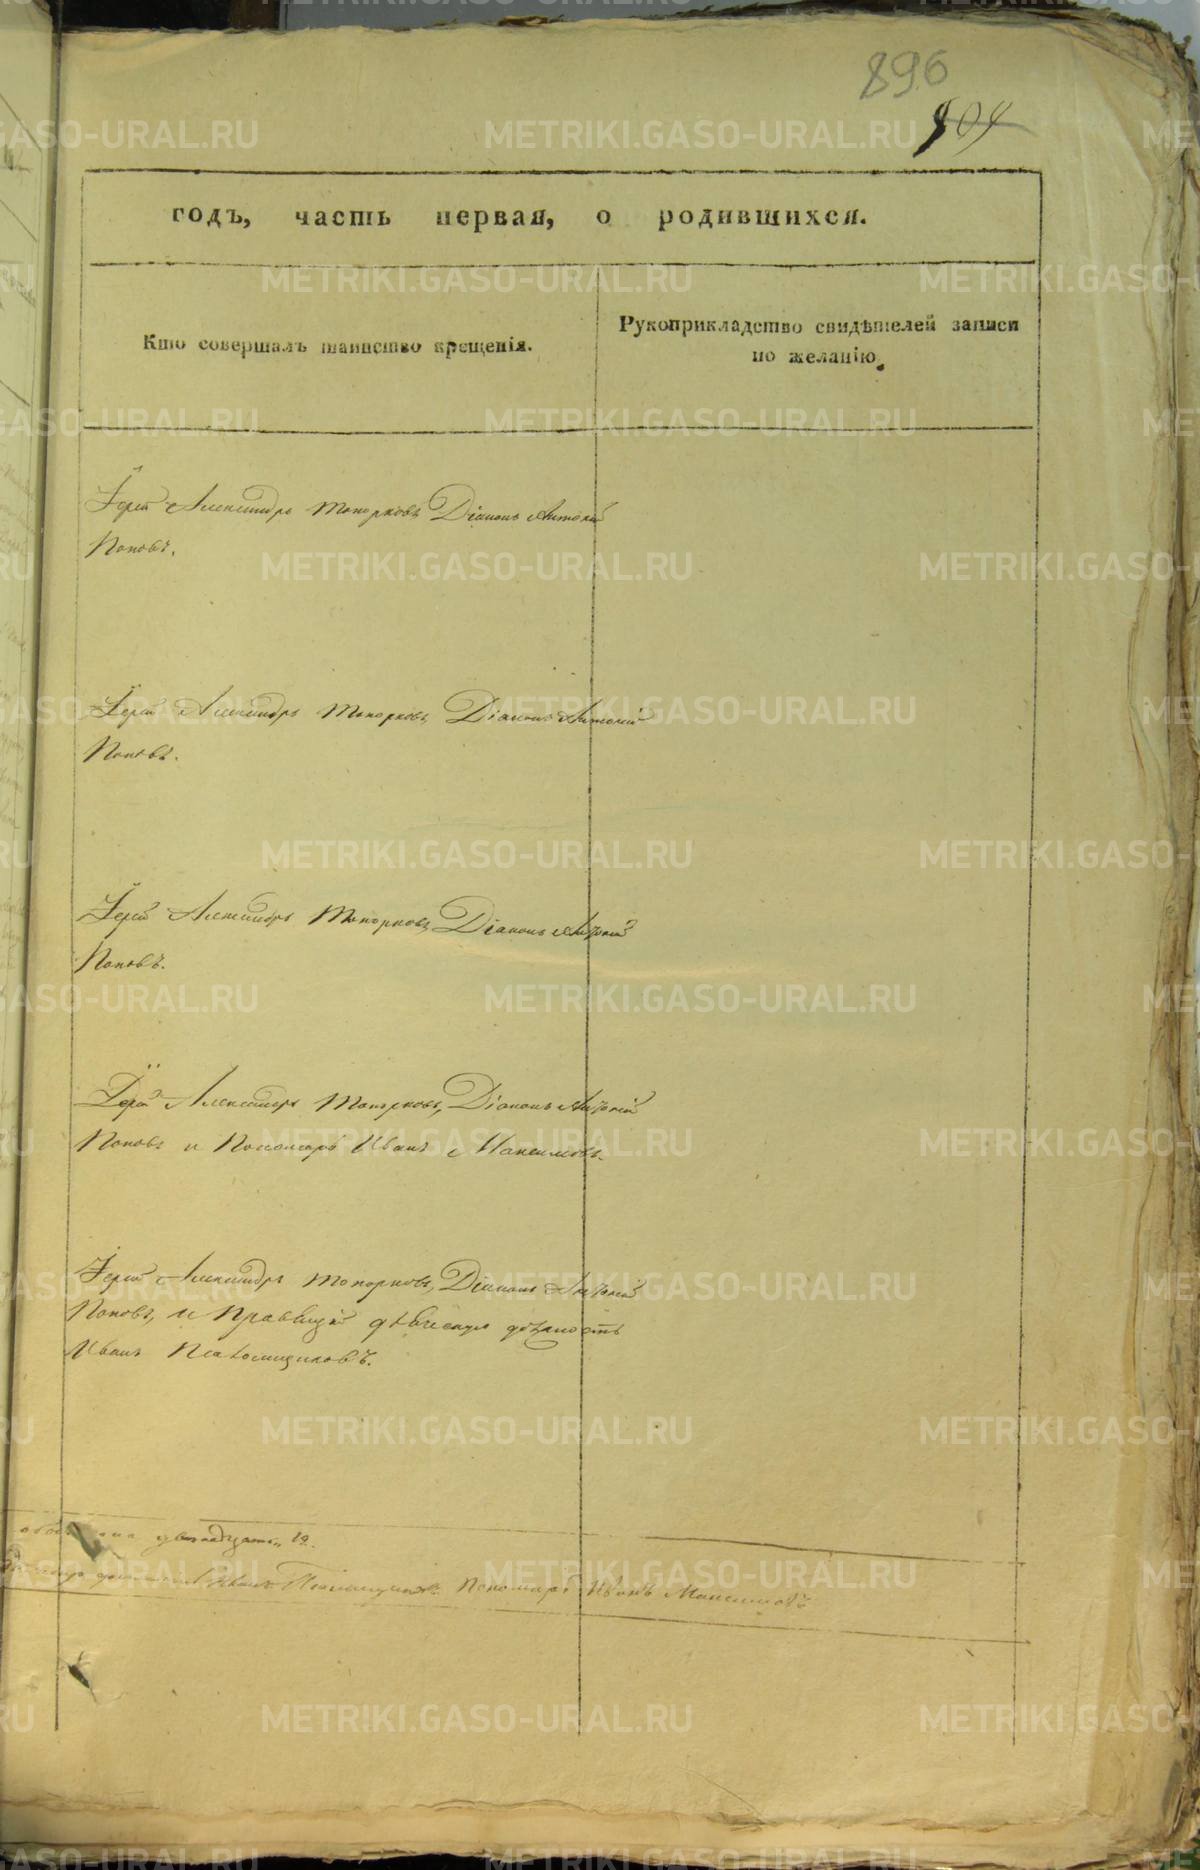 896
904
годъ, часть первая, о родившихся.
Кто совершалъ таинство крещенія.
Рукоприкладство свидѣтелей записи
по желанію.
Іерей Александръ Топорковъ, Діаконъ Антоній
Поповъ.
Іерей Александръ Топорковъ, Діаконъ Антоній
Поповъ.
Іерей Александръ Топорковъ, Діаконъ Антоній
Поповъ.
Іерей Александръ Топорковъ, Діаконъ Антоній
Поповъ и Пономарь Иванъ Максимовъ.
Іерей Александръ Топорковъ, Діаконъ Антоній
Поповъ, и Правящій дьяческую должность
Иванъ Псаломщиковъ.
двенадцать 12.
Иванъ Псаломщиковъ Пономарь Иванъ Максимовъ
METRIKI.GASO-URAL.RU